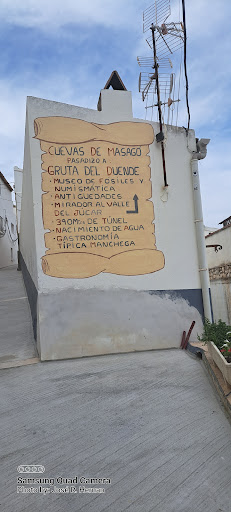 CUEVAS DE MASAGO
PASADIZO A
GRUTA DEL DUENDE
·MUSEO DE FOSILES Y
NUMISMÁTICA
·ANTIGUEDADES
·MIRADOR AL VALLE
DEL JUCAR
·390Mts DE TUNEL
·NACIMIENTO DE AGUA
·GASTRONOMÍA
TÍPICA MANCHEGA
Samsung Quad Camera
Photo by: José R. Hernan